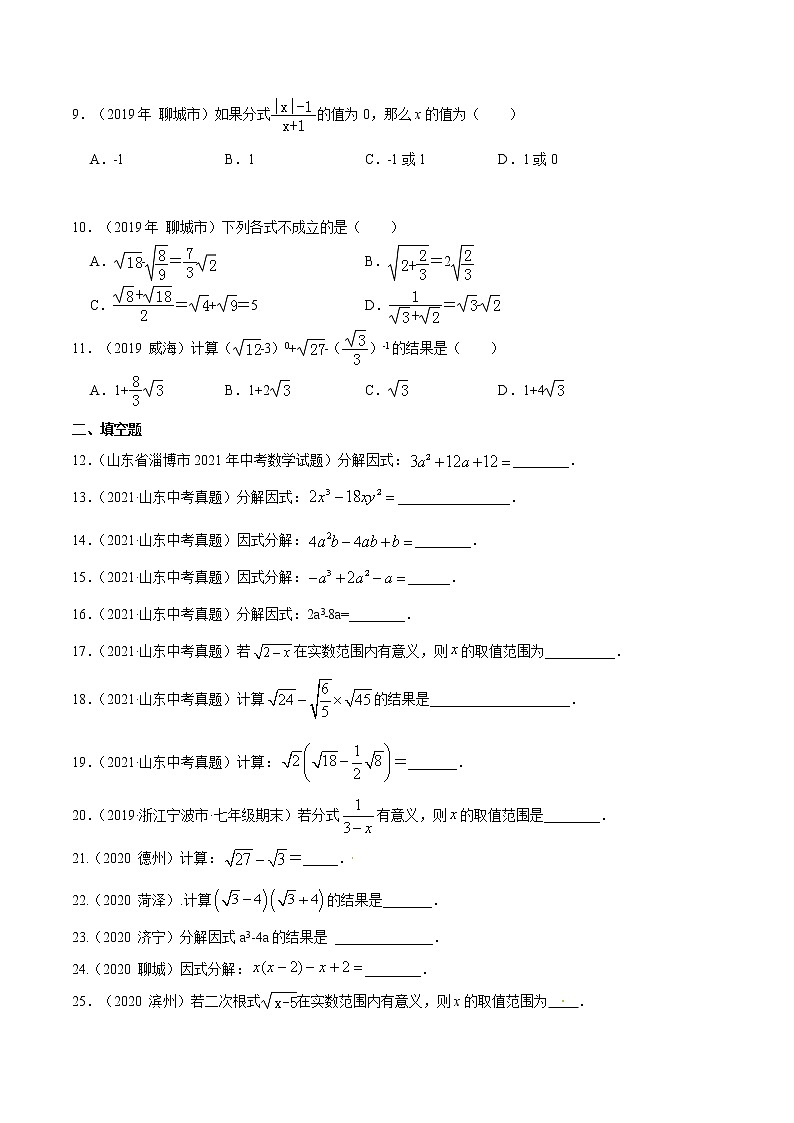 9.（2019年 聊城市）如果分式|x|-1/x+1的值为0，那么x的值为（　　）
A.-1　B.1　C.-1或1　D.1或0
10.（2019年 聊城市）下列各式不成立的是（　　）
A.√18-√(8/9)=7/3√2　B.√(2+2/3)=2√(2/3)
C.(√8+√18)/2=√4+√9=5　D.1/(√3+√2)=√3-√2
11.（2019 威海）计算（√12-3）⁰+√27-（√3/3）⁻¹的结果是（　　）
A.1+8/3√3　B.1+2√3　C.√3　D.1+4√3
二、填空题
12.（山东省淄博市2021年中考数学试题）分解因式：3a²+12a+12=________.
13.（2021·山东中考真题）分解因式：2x³-18xy²=________________.
14.（2021·山东中考真题）因式分解：4a²b-4ab+b=________.
15.（2021·山东中考真题）因式分解：-a³+2a²-a=______.
16.（2021·山东中考真题）分解因式：2a³-8a=________.
17.（2021·山东中考真题）若√(2-x)在实数范围内有意义，则x的取值范围为__________.
18.（2021·山东中考真题）计算√24-√(6/5)×√45的结果是____________________.
19.（2021·山东中考真题）计算：√2(√18-1/2√8)=_______.
20.（2019·浙江宁波市·七年级期末）若分式1/(3-x)有意义，则x的取值范围是________.
21.（2020 德州）计算：√27-√3=_____.
22.（2020 菏泽）.计算(√3-4)(√3+4)的结果是_______.
23.（2020 济宁）分解因式a³-4a的结果是 ______________.
24.（2020 聊城）因式分解：x(x-2)-x+2=________.
25.（2020 滨州）若二次根式√(x-5)在实数范围内有意义，则x的取值范围为____.